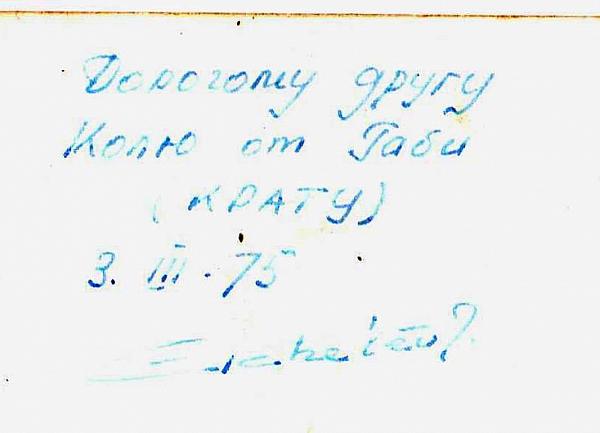 Дорогому другу
Колю от Габи
(КРАТУ)
3. III. 75